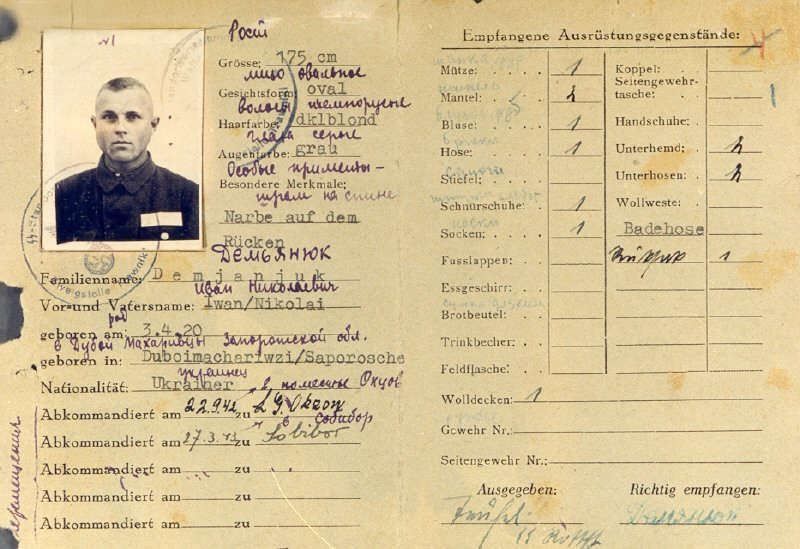 №1
Рост
Grösse: 175 cm
лицо овальное
Gesichtsform: oval
волосы темнорусые
Haarfarbe: dklblond
глаза серые
Augenfarbe: grau
Особые приметы —
Besondere Merkmale:
шрам на спине
Narbe auf dem
Rücken
Демьянюк
Familienname: Demjanjuk
Иван Николаевич
Vor-und Vatersname: Iwan/Nikolai
род
geboren am: 3.4.20
в Дубой Махаривцы Запорожской обл.
geboren in: Duboimachariwzi/Saporosche
украинец
Nationalität: Ukrainer
в поместье Окцов
Abkommandiert am 22.9.42 zu L.G. Okzow
в Собибор
Abkommandiert am 27.3.43 zu Sobibor
Abkommandiert am zu
Abkommandiert am zu
Abkommandiert am zu
Empfangene Ausrüstungsgegenstände: 4
Mütze: 1
Mantel: 2
Bluse: 1
Hose: 1
Stiefel:
Schnürschuhe: 1
Socken: 1
Fusslappen:
Essgeschirr:
Brotbeutel:
Trinkbecher:
Feldflasche:
Wolldecken: 1
Gewehr Nr.:
Seitengewehr Nr.:
Koppel:
Seitengewehr-
tasche: 1
Handschuhe:
Unterhemd: 2
Unterhosen: 2
Wollweste:
Badehose
1
Ausgegeben:
Richtig empfangen: